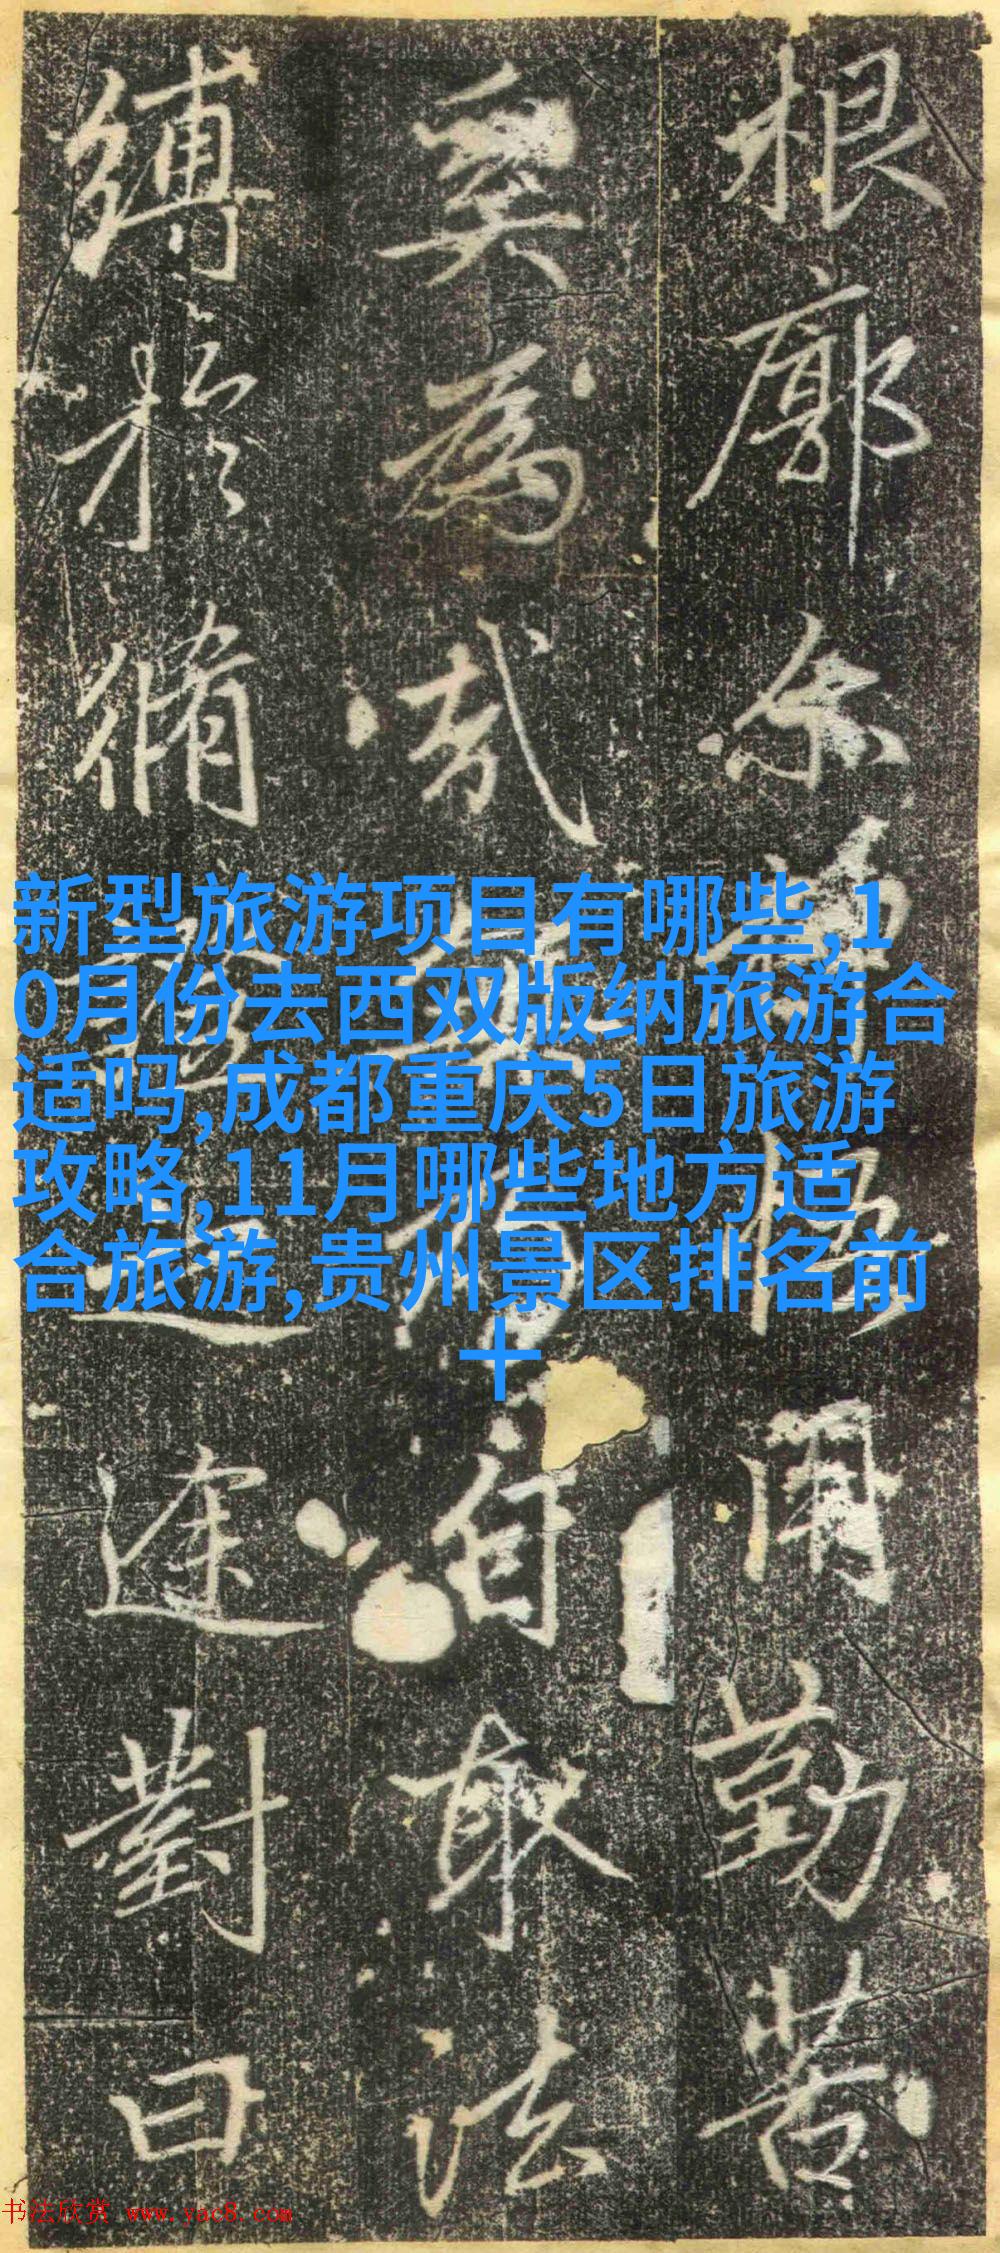 根廓尔
用勤苦
奚为我
自取法
缚於脩
途對曰
新型旅游项目有哪些,1
0月份去西双版纳旅游合
适吗,成都重庆5日旅游
攻略,11月哪些地方适
合旅游,贵州景区排名前
十
书法欣赏 www.yac8.com